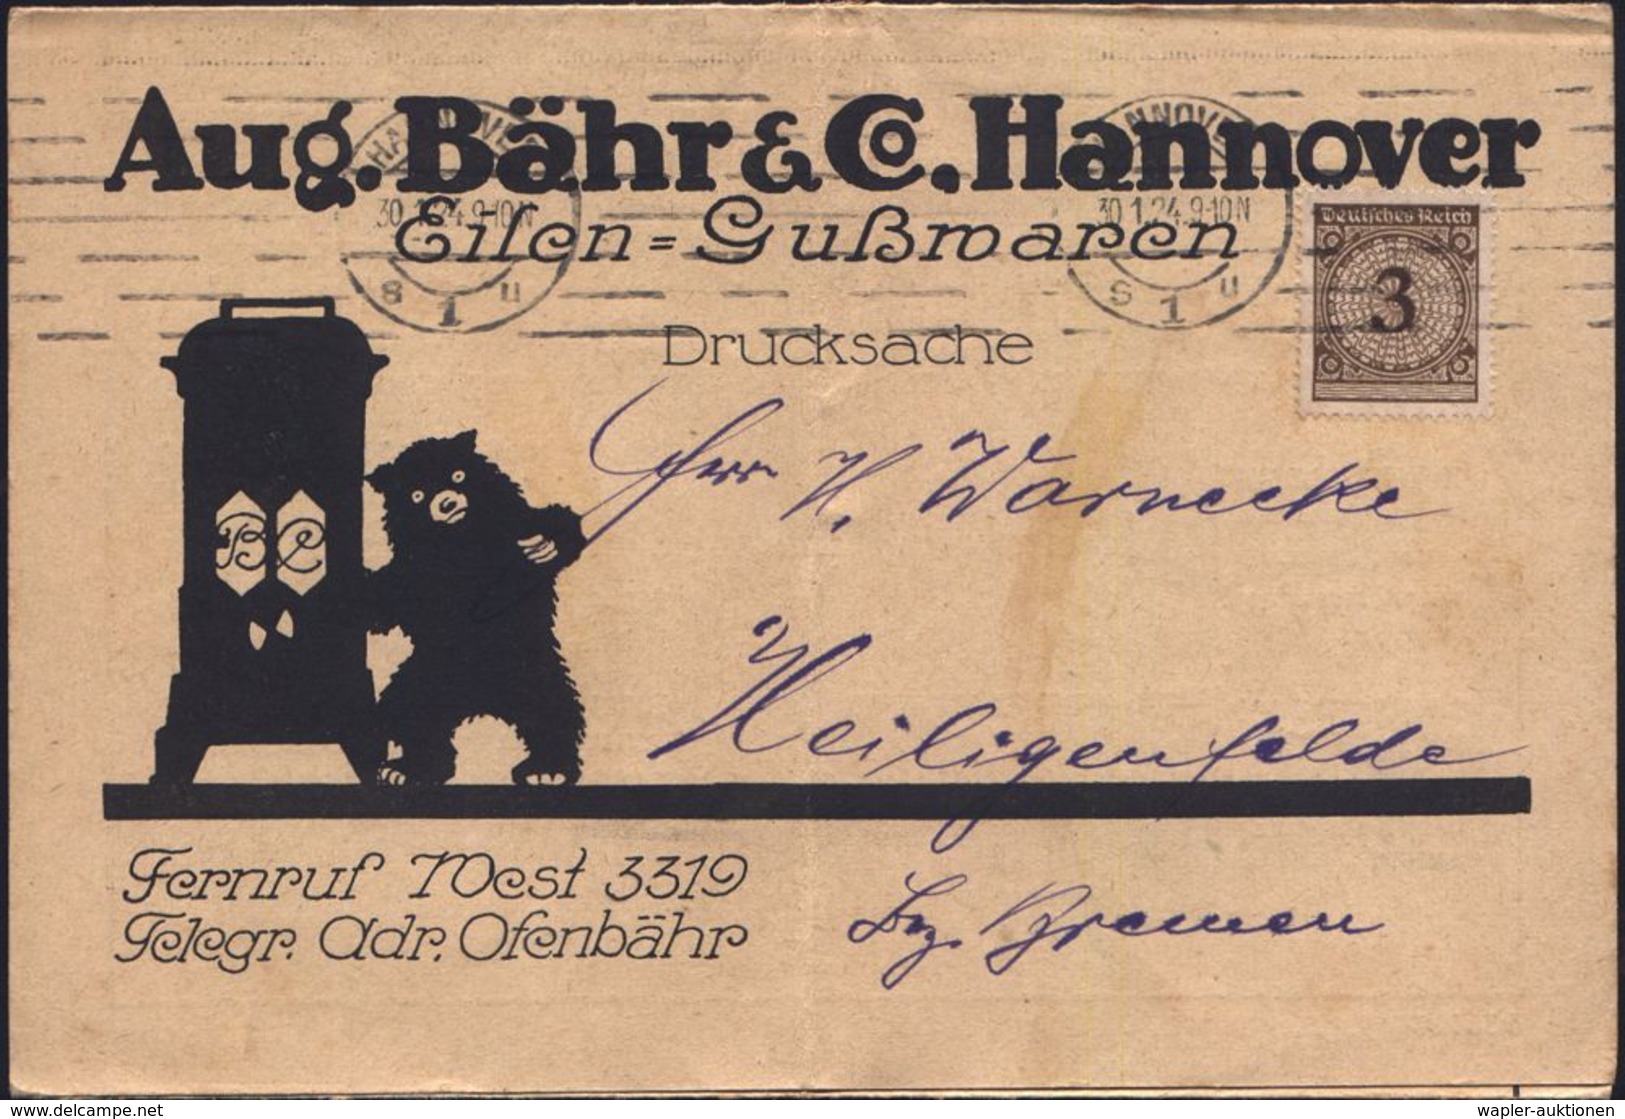 Aug. Bähr & Co. Hannover
HANNOVER
30.1.24.9-10N
s 1 u
HANNOVER
30.1.24.9-10N
s 1 u
Eisen=Gußwaren
Deutsches Reich
3
Drucksache
Herr H. Warnecke
BC
Heiligenfelde
Bez. Bremen
Fernruf West 3319
Telegr. Adr. Ofenbähr
www.delcampe.net
wapler-auktionen